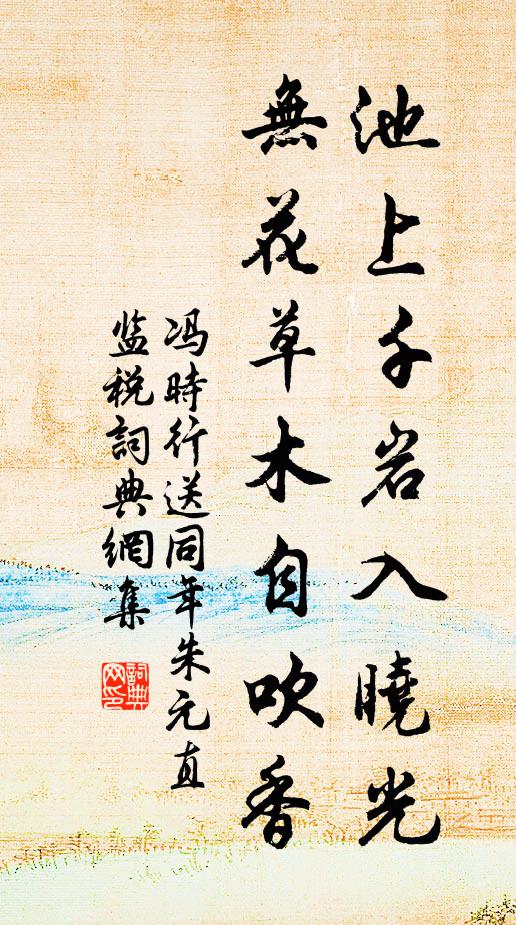 池上千岩入曉光
無花草木自吹香
冯時行送同年朱元直
监税詞典網集
詞典
网印